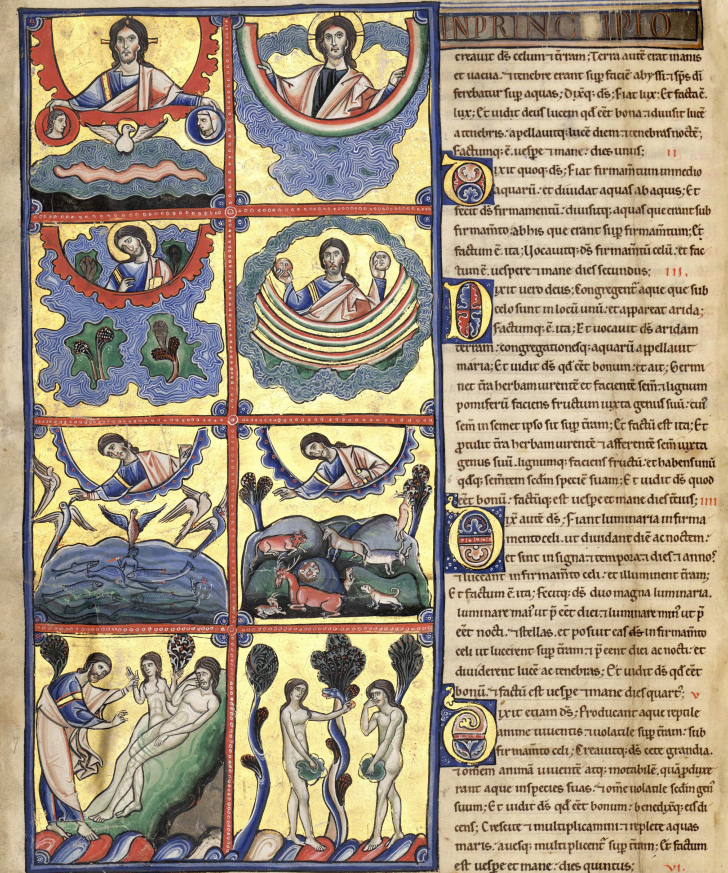 IN PRINCIPIO
creavit ds celum ⁊ t̄ram; Terra autē erat inanis
et vacua. ⁊ tenebre erant sup̄ faciē abyssi: ⁊ sp̄s dī
ferebatur sup̄ aquas; Dixitq; ds; Fiat lux; Et facta ē.
lux; Et vidit deus lucem qd̄ eēt bona: ⁊ divisit lucē
a tenebris. apellavitq; lucē diem: ⁊ tenebras noctē;
factumq; ē. vesp̄e ⁊ mane. dies unus; II
Dixit quoq; ds; Fiat firmamentum in medio
aquarū: et dividat aquas ab aquis; Et
fecit ds firmamentū. divisitq; aquas que erant sub
firmām̄to. ab his que erant sup̄ firmām̄tum; Et
factum ē. ita; Vocavitq; ds firmām̄tū celū: et fac
tum ē. vespere ⁊ mane dies secundus; III.
Dixit vero deus; Congregent̄ aque que sub
celo sunt in locū unū: et appareat arida;
Factumq; ē. ita; Et vocavit ds aridam
terram: congregationesq; aquarū appellavit
maria; Et vidit ds qd̄ eēt bonum: et ait; Germi
net t̄ra herbam virentē et facientē sem̄: ⁊ lignum
pomiferū faciens fructum iuxta genus suū: cui'
sem̄ in semet ipso sit sup̄ t̄ram; Et factū est ita; Et
p̄tulit t̄ra herbam virentē ⁊ afferentē sem̄ iuxta
genus suū. lignumq; faciens fructū: et habens unū
qd̄q; sem̄tem scdm̄ speciē suam; Et vidit ds quod
eēt bonū: factūq; est vesp̄e et mane dies t̄cius; IIII
Dix̄ autē ds; Fiant luminaria in firma
mento celi. ut dividant diē ac noctem:
et sint in signa ⁊ tempora ⁊ dies ⁊ annos
⁊ luceant in firmām̄to celi. et illuminent t̄ram;
Et factum ē. ita; fecitq; ds duo magna luminaria.
luminare mai' ut p̄eēt diei: ⁊ luminare min' ut p̄
eēt nocti. ⁊ stellas. et posuit eas ds in firmām̄to
celi ut lucerent sup̄ t̄ram: ⁊ p̄eent diei ac nocti: et
dividerent lucē ac tenebras; Et vidit ds qd̄ eēt
bonū: ⁊ factū est vesp̄e ⁊ mane dies quart'; V
Dixit etiam ds; Producant aque reptile
anime viventis ⁊ volatile sup̄ t̄ram: sub
firmām̄to celi; Creavitq; ds cete grandia.
⁊ omem animā viventē atq; motabilē. quā p̄duxe
rant aque in species suas. ⁊ om̄e volatile scdm̄ gen'
suum; Et vidit ds qd̄ eēt bonum: benedixq; eis di
cens; Crescite ⁊ multiplicamini: ⁊ replete aquas
maris. avesq; multiplicent̄ sup̄ t̄ram; Et factum
est vespe et mane: dies quintus; VI.